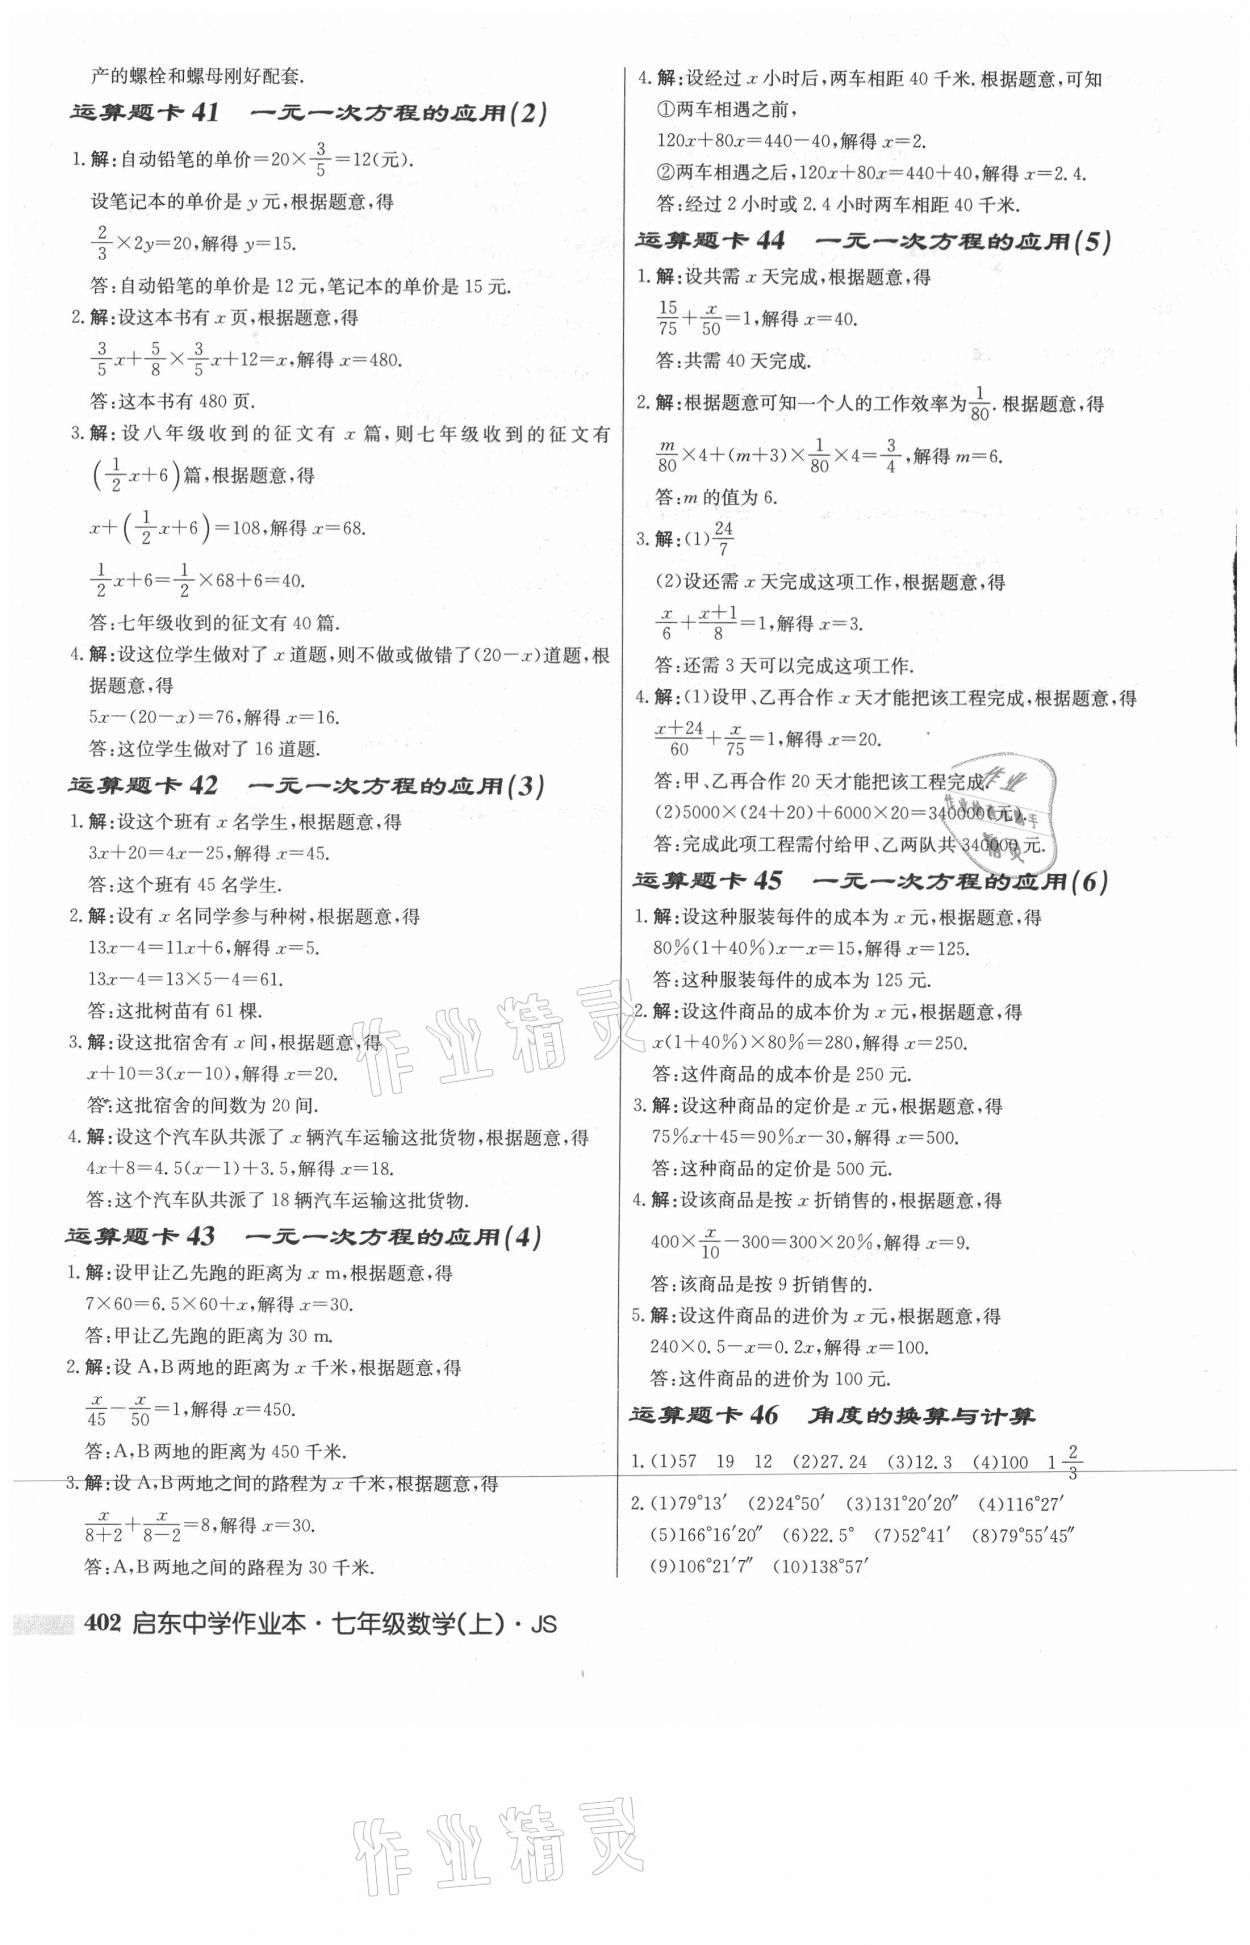 产的螺栓和螺母刚好配套.
运算题卡 41 一元一次方程的应用(2)
1. 解:自动铅笔的单价=20×3/5=12(元).
设笔记本的单价是 y 元,根据题意,得
2/3×2y=20,解得 y=15.
答:自动铅笔的单价是 12 元,笔记本的单价是 15 元.
2. 解:设这本书有 x 页,根据题意,得
3/5x+5/8×3/5x+12=x,解得 x=480.
答:这本书有 480 页.
3. 解:设八年级收到的征文有 x 篇,则七年级收到的征文有
(1/2x+6)篇,根据题意,得
x+(1/2x+6)=108,解得 x=68.
1/2x+6=1/2×68+6=40.
答:七年级收到的征文有 40 篇.
4. 解:设这位学生做对了 x 道题,则不做或做错了(20-x)道题,根
据题意,得
5x-(20-x)=76,解得 x=16.
答:这位学生做对了 16 道题.
运算题卡 42 一元一次方程的应用(3)
1. 解:设这个班有 x 名学生,根据题意,得
3x+20=4x-25,解得 x=45.
答:这个班有 45 名学生.
2. 解:设有 x 名同学参与种树,根据题意,得
13x-4=11x+6,解得 x=5.
13x-4=13×5-4=61.
答:这批树苗有 61 棵.
3. 解:设这批宿舍有 x 间,根据题意,得
x+10=3(x-10),解得 x=20.
答:这批宿舍的间数为 20 间.
4. 解:设这个汽车队共派了 x 辆汽车运输这批货物,根据题意,得
4x+8=4.5(x-1)+3.5,解得 x=18.
答:这个汽车队共派了 18 辆汽车运输这批货物.
运算题卡 43 一元一次方程的应用(4)
1. 解:设甲让乙先跑的距离为 x m,根据题意,得
7×60=6.5×60+x,解得 x=30.
答:甲让乙先跑的距离为 30 m.
2. 解:设 A,B 两地的距离为 x 千米,根据题意,得
x/45-x/50=1,解得 x=450.
答:A,B 两地的距离为 450 千米.
3. 解:设 A,B 两地之间的路程为 x 千米,根据题意,得
x/(8+2)+x/(8-2)=8,解得 x=30.
答:A,B 两地之间的路程为 30 千米.
4. 解:设经过 x 小时后,两车相距 40 千米.根据题意,可知
①两车相遇之前,
120x+80x=440-40,解得 x=2.
②两车相遇之后,120x+80x=440+40,解得 x=2.4.
答:经过 2 小时或 2.4 小时两车相距 40 千米.
运算题卡 44 一元一次方程的应用(5)
1. 解:设共需 x 天完成,根据题意,得
15/75+x/50=1,解得 x=40.
答:共需 40 天完成.
2. 解:根据题意可知一个人的工作效率为1/80.根据题意,得
m/80×4+(m+3)×1/80×4=3/4,解得 m=6.
答:m 的值为 6.
3. 解:(1)24/7
(2)设还需 x 天完成这项工作,根据题意,得
x/6+(x+1)/8=1,解得 x=3.
答:还需 3 天可以完成这项工作.
4. 解:(1)设甲、乙再合作 x 天才能把该工程完成,根据题意,得
(x+24)/60+x/75=1,解得 x=20.
答:甲、乙再合作 20 天才能把该工程完成.
(2)5000×(24+20)+6000×20=340000(元).
答:完成此项工程需付给甲、乙两队共 340000 元.
运算题卡 45 一元一次方程的应用(6)
1. 解:设这种服装每件的成本为 x 元,根据题意,得
80%(1+40%)x-x=15,解得 x=125.
答:这种服装每件的成本为 125 元.
2. 解:设这件商品的成本价为 x 元,根据题意,得
x(1+40%)×80%=280,解得 x=250.
答:这件商品的成本价是 250 元.
3. 解:设这种商品的定价是 x 元,根据题意,得
75%x+45=90%x-30,解得 x=500.
答:这种商品的定价是 500 元.
4. 解:设该商品是按 x 折销售的,根据题意,得
400×x/10-300=300×20%,解得 x=9.
答:该商品是按 9 折销售的.
5. 解:设这件商品的进价为 x 元,根据题意,得
240×0.5-x=0.2x,解得 x=100.
答:这件商品的进价为 100 元.
运算题卡 46 角度的换算与计算
1. (1)57 19 12 (2)27.24 (3)12.3 (4)100 1 2/3
2. (1)79°13′ (2)24°50′ (3)131°20′20″ (4)116°27′
(5)166°16′20″ (6)22.5° (7)52°41′ (8)79°55′45″
(9)106°21′7″ (10)138°57′
402 启东中学作业本·七年级数学(上)·JS
作业精灵
作业精灵
作业
精灵